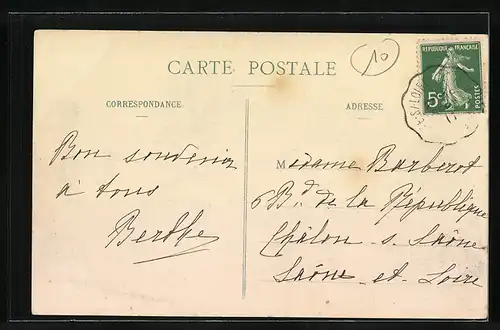 10
CARTE POSTALE
RÉPUBLIQUE FRANÇAISE
5c
POSTES
CORRESPONDANCE
ADRESSE
Bon souvenir
à tous
Berthe
Madame Barberot
6 Bd. de la République
Châlon s. Saône
Saône et Loire